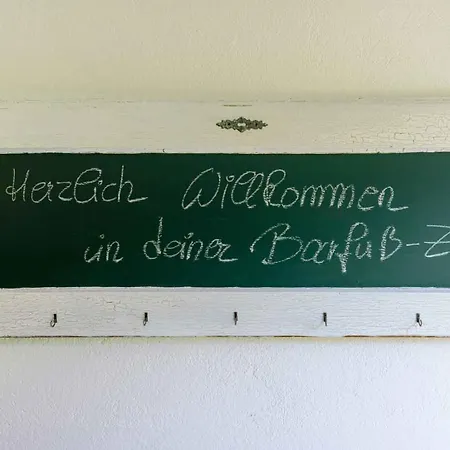 Herzlich Willkommen
in deiner Barfuß-Z